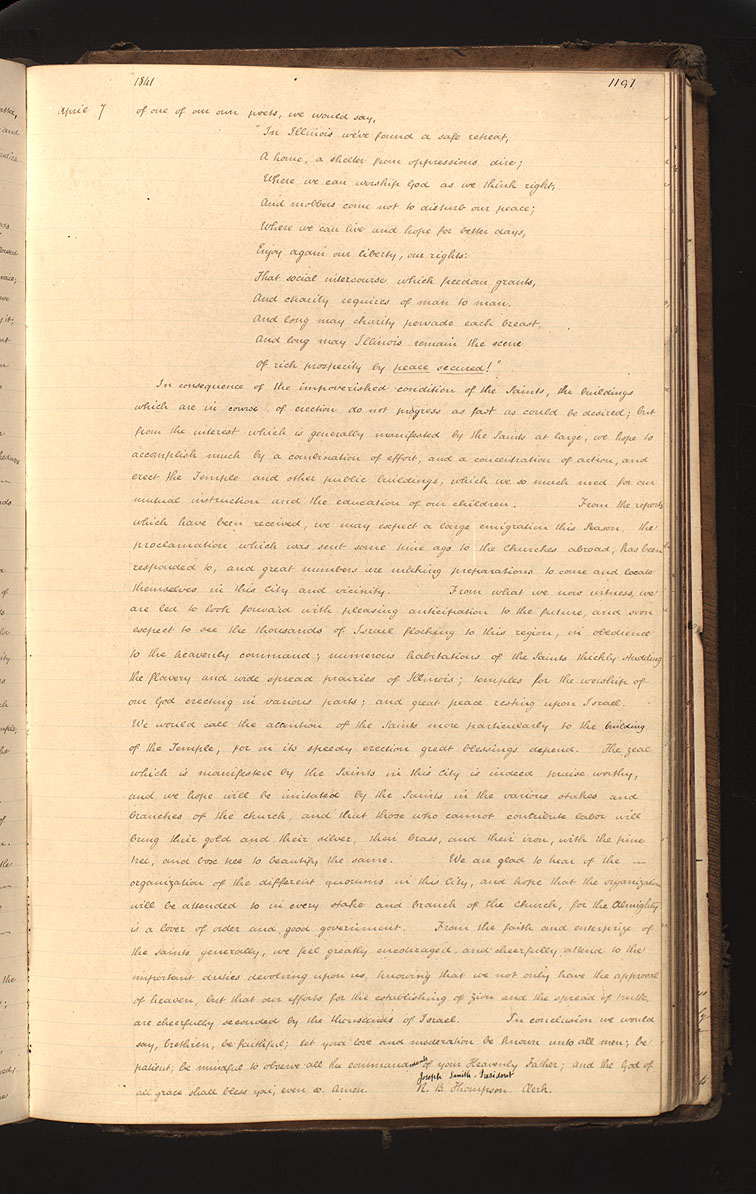 1841
1191
April 7
of one of our own poets, we would say,
"In Illinois we've found a safe retreat,
A home, a shelter from oppressions dire;
Where we can worship God as we think right,
And mobbers come not to disturb our peace;
Where we can live and hope for better days,
Enjoy again our liberty, our rights:
That social intercourse which freedom grants,
And charity requires of man to man.
And long may charity pervade each breast,
And long may Illinois remain the scene
Of rich prosperity by peace secured!"
In consequence of the impoverished condition of the Saints, the buildings
which are in course of erection do not progress as fast as could be desired; but
from the interest which is generally manifested by the Saints at large, we hope to
accomplish much by a combination of effort, and a concentration of action, and
erect the Temple and other public buildings, which we so much need for our
mutual instruction and the education of our children. From the reports
which have been received, we may expect a large emigration this Season. The
proclamation which was sent some time ago to the Churches abroad, has been
responded to, and great numbers are making preparations to come and locate
themselves in this City and vicinity. From what we now witness, we
are led to look forward with pleasing anticipation to the future, and soon
expect to see the thousands of Israel flocking to this region, in obedience
to the heavenly command; numerous habitations of the Saints thickly studding
the flowery and wide spread prairies of Illinois; temples for the worship of
our God erecting in various parts; and great peace resting upon Israel.
We would call the attention of the Saints more particularly to the building
of the Temple, for on its speedy erection great blessings depend. The zeal
which is manifested by the Saints in this City is indeed praise worthy,
and we hope will be imitated by the Saints in the various stakes and
branches of the church, and that those who cannot contribute labor will
bring their gold and their silver, their brass, and their iron, with the pine
tree, and box tree to beautify the same. We are glad to hear of the —
organization of the different quorums in this City, and hope that the organization
will be attended to in every stake and branch of the Church, for the Almighty
is a lover of order and good government. From the faith and enterprize of
the Saints generally, we feel greatly encouraged, and cheerfully attend to the
important duties devolving upon us, knowing that we not only have the approval
of heaven, but that our efforts for the establishing of Zion and the spread of truth,
are cheerfully seconded by the thousands of Israel. In conclusion we would
say, brethren, be faithful; let your love and moderation be known unto all men; be
patient, be mindful to observe all the commandments of your Heavenly Father; and the God of
all grace shall bless you; even so. Amen.
Joseph Smith. President
R. B. Thompson. Clerk.